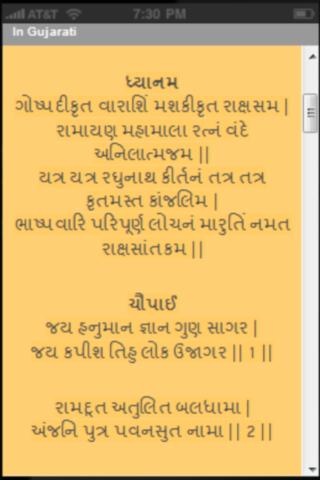 AT&T 7:30 PM
In Gujarati
ધ્યાનમ
ગોષ્પદીકૃત વારાશિં મશકીકૃત રાક્ષસમ |
રામાયણ મહામાલા રત્નં વંદે
અનિલાત્મજમ ||
યત્ર યત્ર રઘુનાથ કીર્તનં તત્ર તત્ર
કૃતમસ્ત કાંજલિમ |
ભાષ્પવારિ પરિપૂર્ણ લોચનં મારુતિં નમત
રાક્ષસાંતકમ ||
ચૌપાઈ
જય હનુમાન જ્ઞાન ગુણ સાગર |
જય કપીશ તિહુ લોક ઉજાગર || 1 ||
રામદૂત અતુલિત બલધામા |
અંજનિ પુત્ર પવનસુત નામા || 2 ||